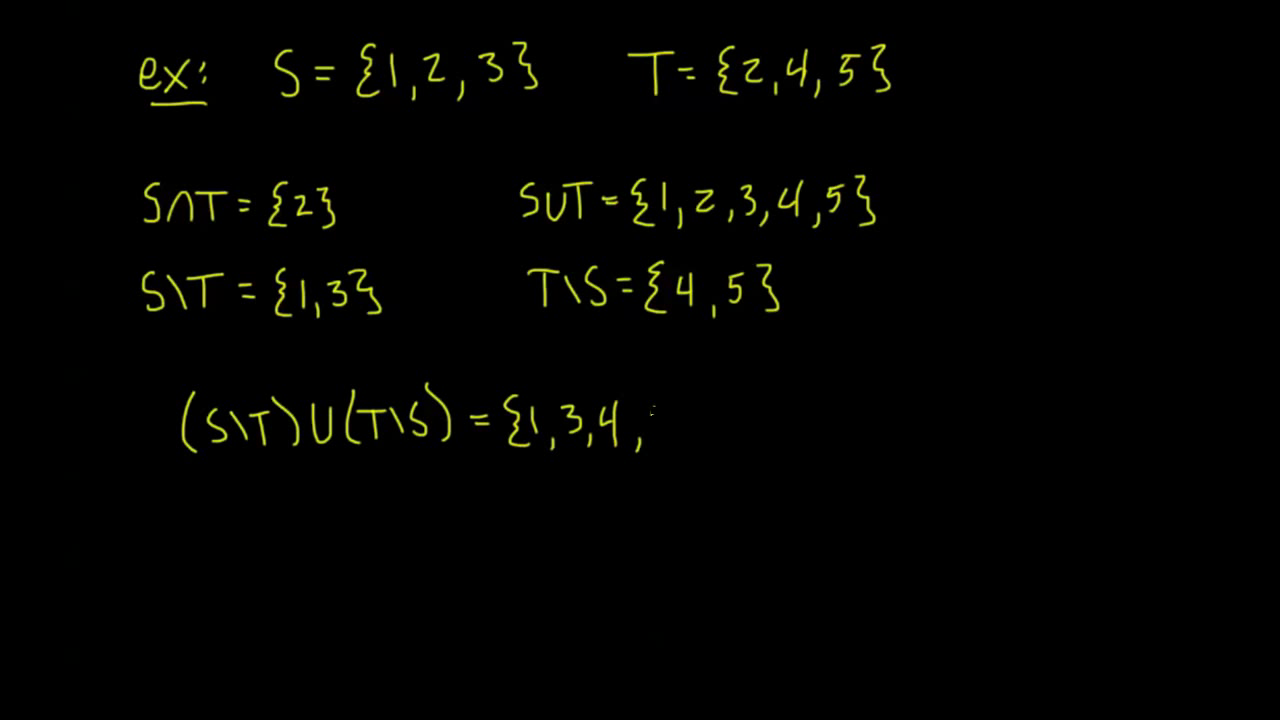 ex: S = {1, 2, 3} T = {2, 4, 5}
S∩T = {2} S∪T = {1, 2, 3, 4, 5}
S\T = {1, 3} T\S = {4, 5}
(S\T) ∪ (T\S) = {1, 3, 4,